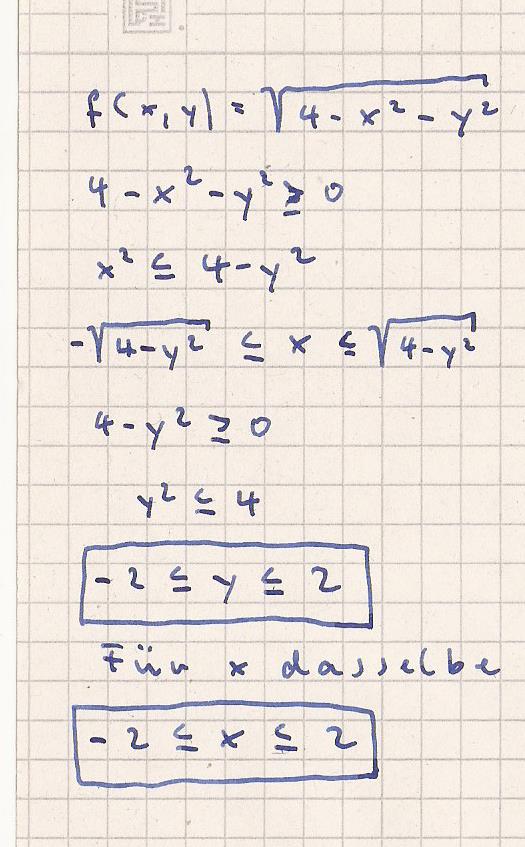 f(x,y) = √(4-x²-y²)
4-x²-y² ≥ 0
x² ≤ 4-y²
-√(4-y²) ≤ x ≤ √(4-y²)
4-y² ≥ 0
y² ≤ 4
-2 ≤ y ≤ 2
Für x dasselbe
-2 ≤ x ≤ 2